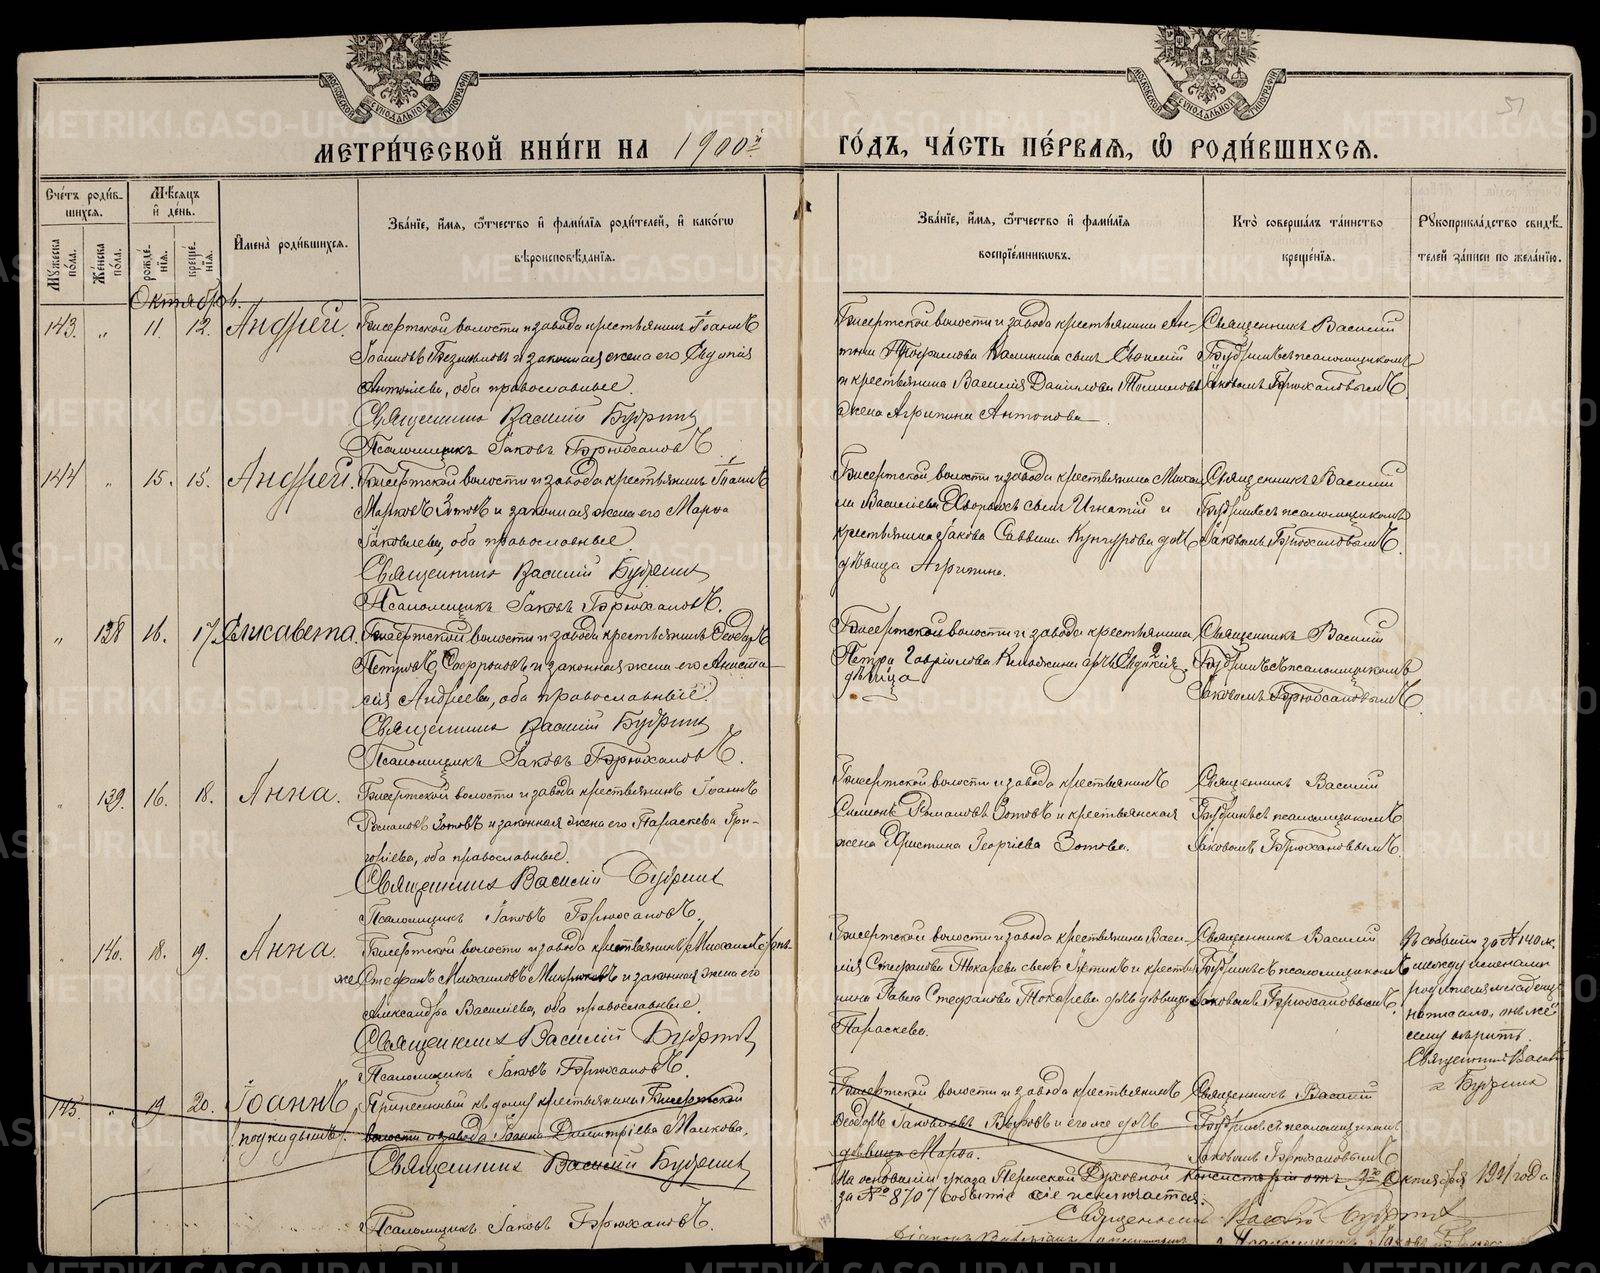 МОСКОВСКОЙ СѴНОДАЛЬНОЙ ТИПОГРАФІИ
МОСКОВСКОЙ СѴНОДАЛЬНОЙ ТИПОГРАФІИ
51
МЕТРИ́ЧЕСКОЙ КНИ́ГИ НА 1900й
ГО́ДЪ, ЧА́СТЬ ПЕ́РВАЯ, Ѽ РОДИ́ВШИХСЯ.
Сче́тъ роди́в-
шихся.
Мꙋжеска по́ла.
Же́нска по́ла.
Мѣ́сяцъ
и҆ де́нь.
рожде́-
нїя.
креще́-
нїя.
И҆мена̀ роди́вшихся.
Зва́нїе, и҆́мя, ѻ҆́тчество и҆ фами́лїя роди́телей, и҆ како́гѡ
вѣроисповѣ́данїя.
Зва́нїе, и҆́мя, ѻ҆́тчество и҆ фами́лїя
воспрїе́мниковъ.
Кто̀ соверша́лъ та́инство
креще́нїя.
Рꙋкоприкла́дство свидѣ́-
телей за́писи по жела́нїю.
Октябрь.
143. „ 11. 12. Андрей.
Бисертской волости и завода крестьянинъ Іоаннъ
и законная жена его Евдокія
Антоніева, оба православные.
Священникъ Василій Будринъ
Псаломщикъ Іаковъ Брюхановъ
Бисертской волости и завода крестьянина Ан-
тона Трофимова Калинина сынъ
и крестьянина Василія Данилова
жена Агрипина Антонова
Священникъ Василій
Будринъ съ псаломщикомъ
Іаковомъ Брюхановымъ.
144 „ 15. 15. Андрей.
Бисертской волости и завода крестьянинъ Іоаннъ
Марковъ Зотовъ и законная жена его Марѳа
Іаковлева, оба православные.
Священникъ Василій Будринъ
Псаломщикъ Іаковъ Брюхановъ.
Бисертской волости и завода крестьянина Михаи-
ла Васильева сынъ Игнатій и
крестьянина Іакова Саввина Кунгурова дочь
дѣвица Агрипина.
Священникъ Василій
Будринъ съ псаломщикомъ
Іаковомъ Брюхановымъ.
„ 138 16. 17. Елисавета.
Бисертской волости и завода крестьянинъ Ѳеодоръ
Петровъ Софроновъ и законная жена его Анаста-
сія Андреева, оба православные.
Священникъ Василій Будринъ
Псаломщикъ Іаковъ Брюхановъ.
Бисертской волости и завода крестьянина
Петра Гавріилова дочь Евдокія,
дѣвица
Священникъ Василій
Будринъ съ псаломщикомъ
Іаковомъ Брюхановымъ.
„ 139. 16. 18. Анна.
Бисертской волости и завода крестьянинъ Іоаннъ
Романовъ Зотовъ и законная жена его Параскева Гри-
горіева, оба православные.
Священникъ Василій Будринъ
Псаломщикъ Іаковъ Брюхановъ.
Бисертской волости и завода крестьянинъ
Симеонъ Романовъ Зотовъ и крестьянская
жена Христина Георгіева Зотова.
Священникъ Василій
Будринъ съ псаломщикомъ
Іаковомъ Брюхановымъ.
„ 140. 18. 19. Анна.
Бисертской волости и завода крестьянинъ Михаилъ онъ
же Стефанъ Михаиловъ Микрюковъ и законная жена его
Александра Васильева, оба православные.
Священникъ Василій Будринъ
Псаломщикъ Іаковъ Брюхановъ.
Бисертской волости и завода крестьянина Васи-
лія Стефанова Токарева сынъ и крестья-
нина Павла Стефанова Токарева дочь дѣвица
Параскева.
Священникъ Василій
Будринъ съ псаломщикомъ
Іаковомъ Брюхановымъ.
Въ событіи за № 140 м.
между именами
родителя младенца
написано, онъ же
сему вѣрить.
Священникъ Васи-
лій Будринъ
145. „ 19 20. Іоаннъ,
(подкидышъ).
Принесенный къ дому крестьянина Бисертской
волости и завода Іоанна Димитріева Малкова,
Священникъ Василій Будринъ
Псаломщикъ Іаковъ Брюхановъ.
Бисертской волости и завода крестьянинъ
Ѳеодоръ Іаковлевъ и его же дочь
дѣвица Марѳа.
Священникъ Василій
Будринъ съ псаломщикомъ
Іаковомъ Брюхановымъ
На основаніи указа Пермской Духовной Консисторіи отъ Октября 1901 года
за № 8707 событіе сіе исключается.
Священникъ Василій Будринъ
Псаломщикъ Іаковъ
METRIKI.GASO-URAL.RU